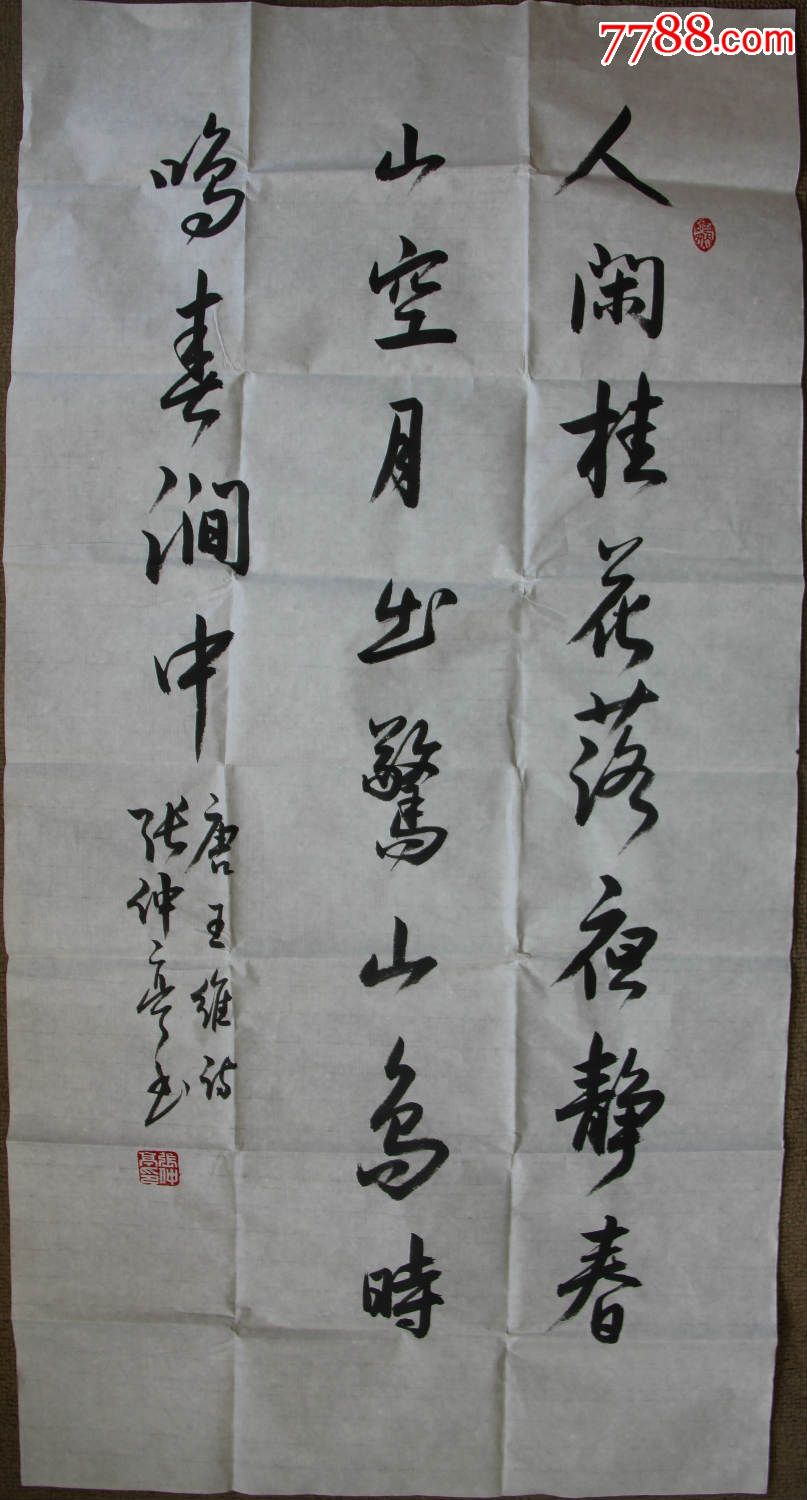 7788.com
人閑桂花落夜静春
山空月出驚山鳥時
鳴春澗中
唐王維詩
張仲亭书
張仲亭印